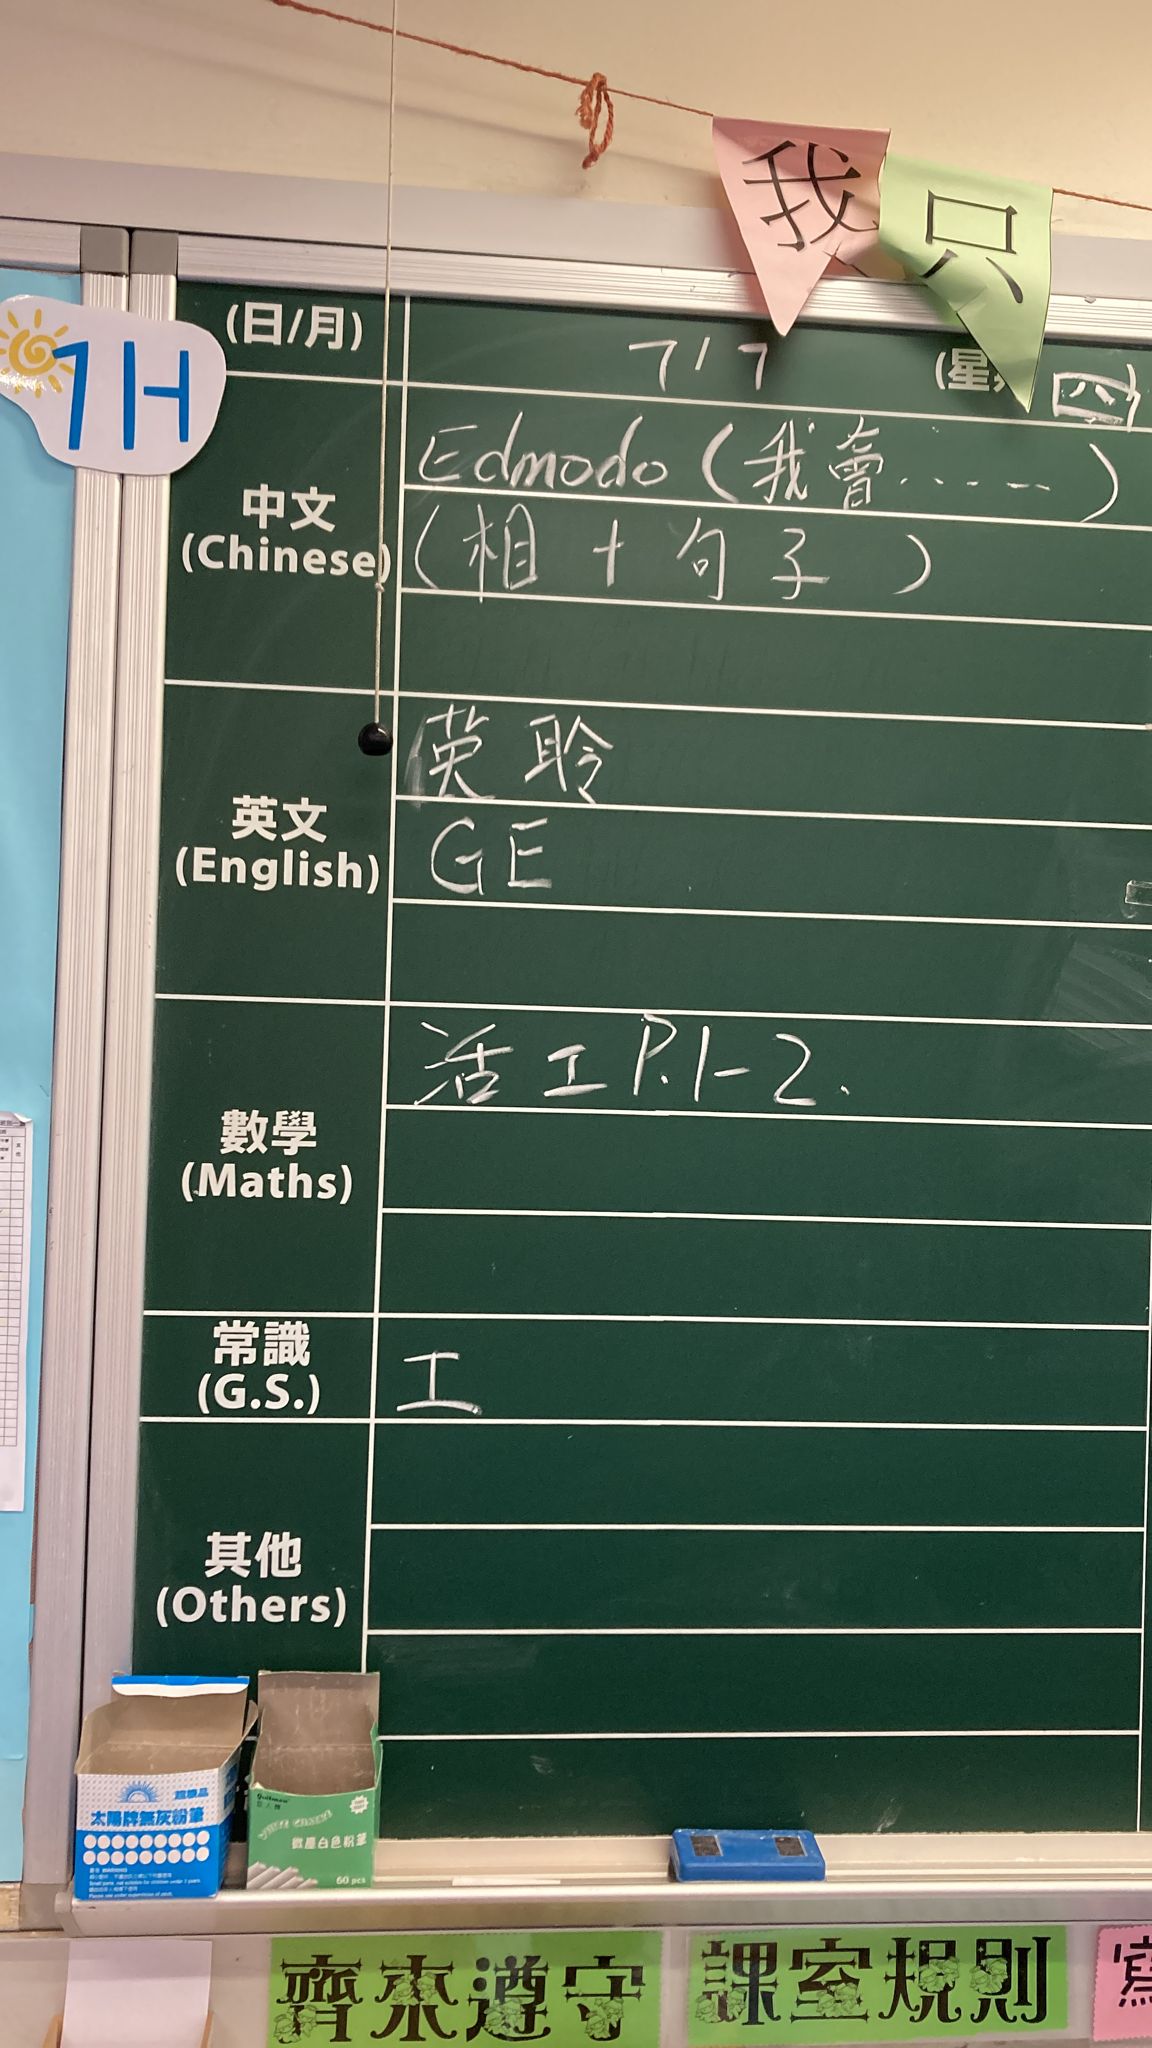 我 只
1H
(日/月) 7/7 (星 四)
中文
(Chinese)
Edmodo (我會......)
(相+句子)
英文
(English)
英聆
GE
數學
(Maths)
活工 P.1-2.
常識
(G.S.)
工
其他
(Others)
太陽牌無灰粉筆
微塵白色粉筆
60 pcs
齊來遵守 課室規則